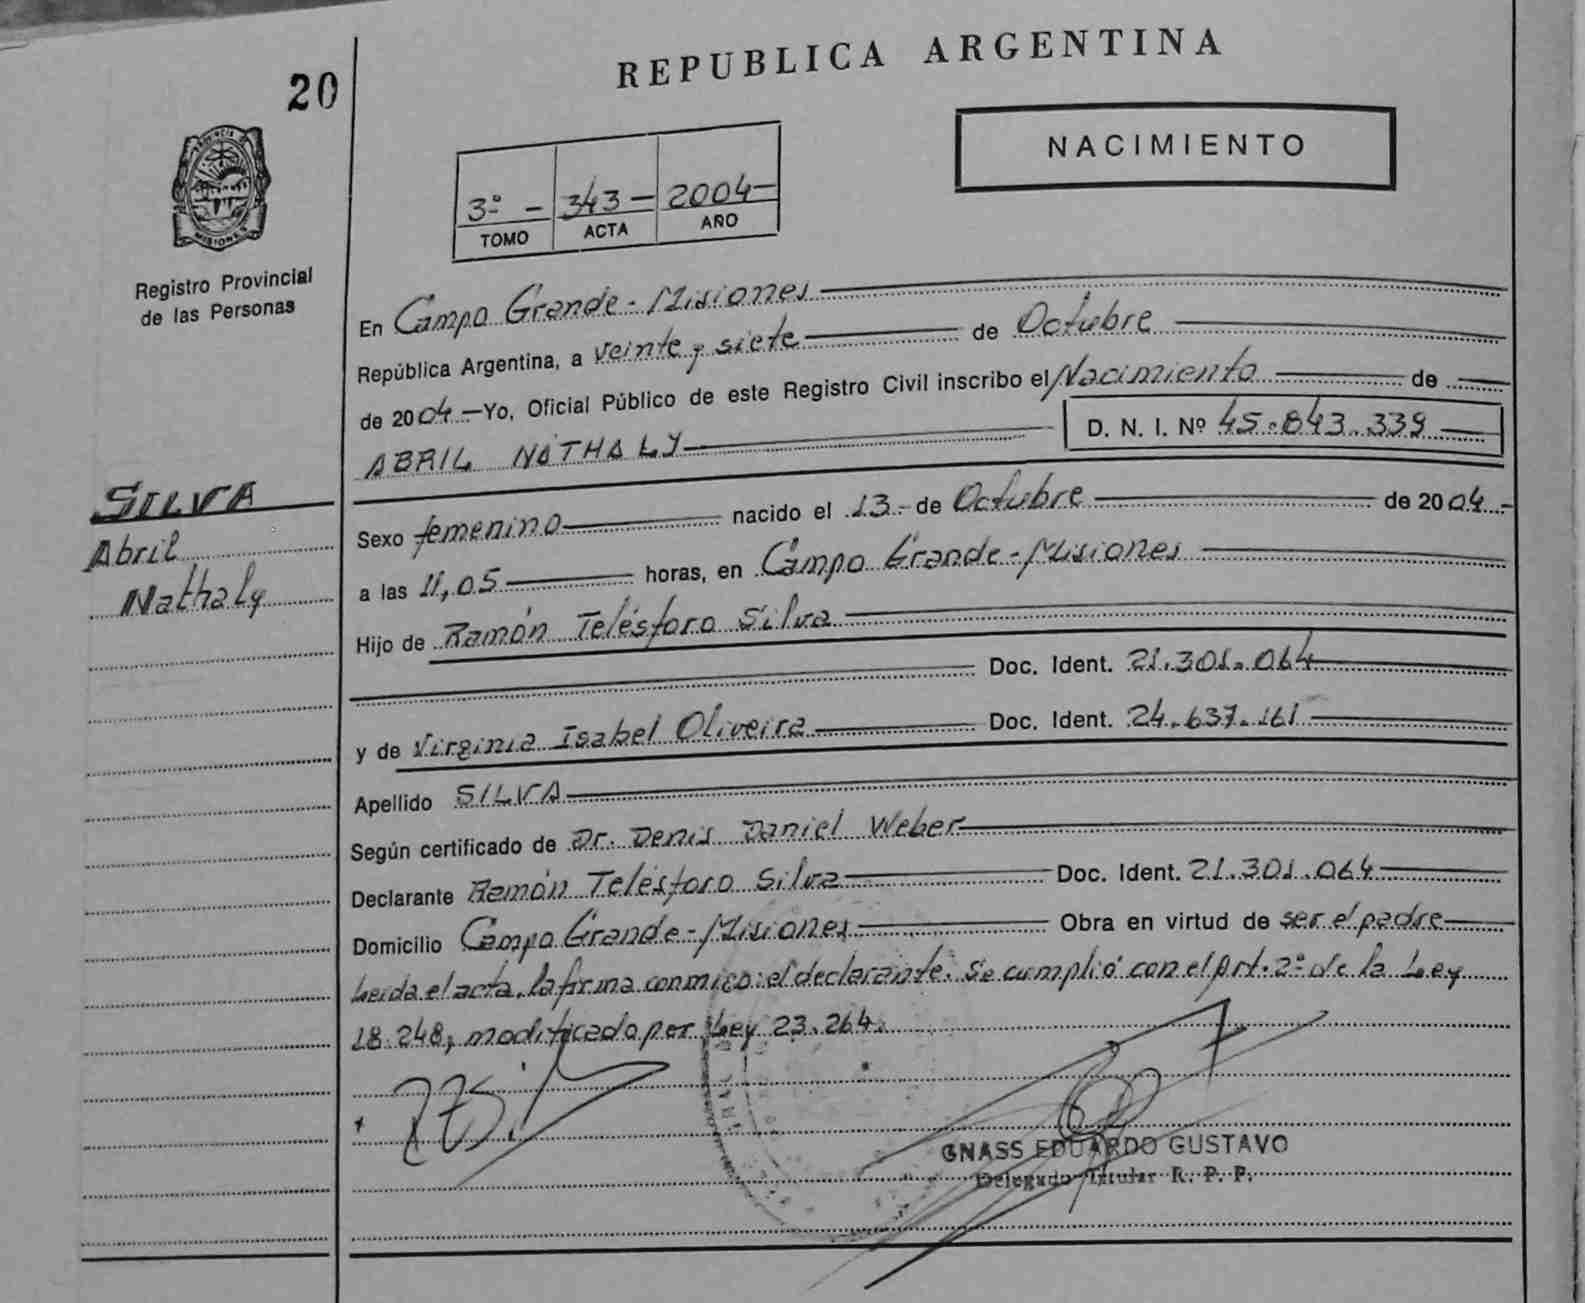 20
REPUBLICA ARGENTINA
NACIMIENTO
3º - 343 - 2004 -
TOMO ACTA AÑO
PROVINCIA DE
MISIONES
Registro Provincial
de las Personas
En Campo Grande - Misiones
República Argentina, a veinte y siete de Octubre
de 2004.- Yo, Oficial Público de este Registro Civil inscribo el Nacimiento de
ABRIL NATHALY D. N. I. Nº 45.843.339
SILVA
Abril
Nathaly
Sexo femenino nacido el 13 - de Octubre de 2004.-
a las 11,05 horas, en Campo Grande - Misiones
Hijo de Ramón Telésforo Silva
Doc. Ident. 21.301.064
y de Virginia Isabel Oliveira Doc. Ident. 24.637.161
Apellido SILVA
Según certificado de Dr. Denis Daniel Weber
Declarante Ramón Telésforo Silva Doc. Ident. 21.301.064
Domicilio Campo Grande - Misiones Obra en virtud de ser el padre
Leida el acta, la firma conmigo: el declarante. Se cumplió con el Art. 2º de la Ley
18.248, modificado por Ley 23.264.
GNASS EDUARDO GUSTAVO
Delegado Titular R. P. P.